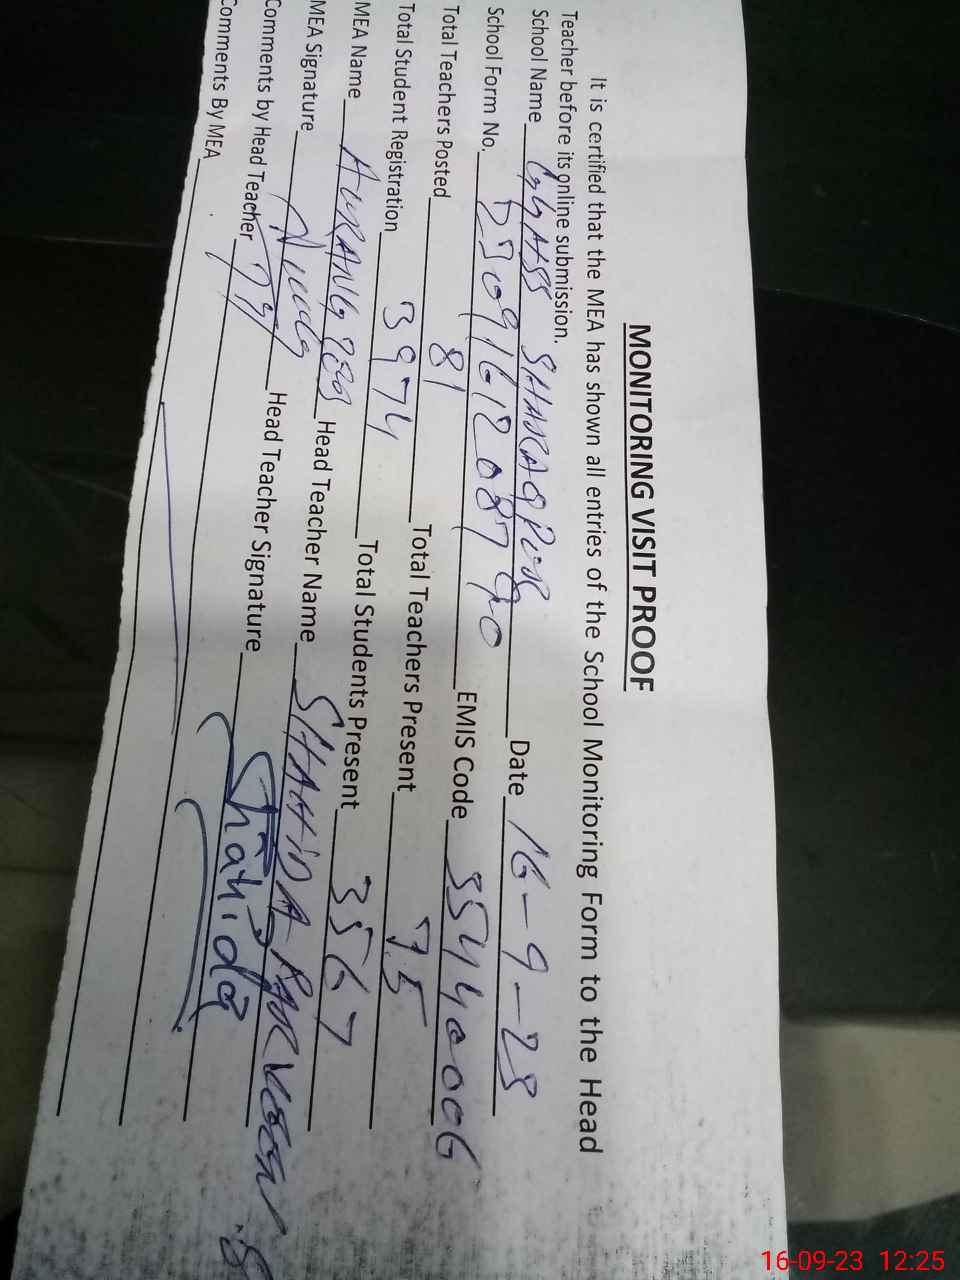 MONITORING VISIT PROOF
It is certified that the MEA has shown all entries of the School Monitoring Form to the Head
Teacher before its online submission.
School Name GGHSS SHARAQPUR Date 16-9-23
School Form No. EMIS Code 35440006
Total Teachers Posted 81 Total Teachers Present 75
Total Student Registration 3974 Total Students Present 3567
MEA Name Head Teacher Name SHAHIDA PARVEEN
MEA Signature Head Teacher Signature Shahida
Comments by Head Teacher
Comments By MEA
16-09-23 12:25